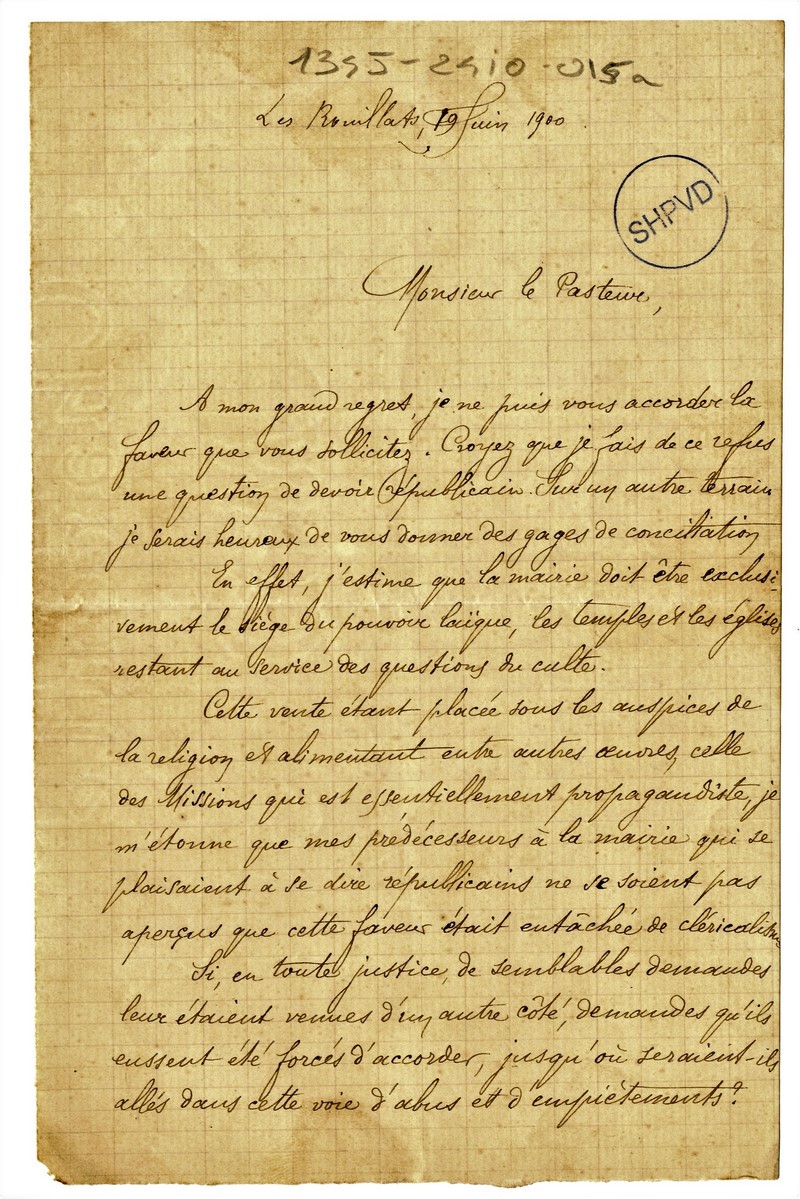 1395-2910-015a
Les Rouillats, 19 Juin 1900.
SHPVD
Monsieur le Pasteur,
A mon grand regret, je ne puis vous accorder la
faveur que vous sollicitez. Croyez que je fais de ce refus
une question de devoir républicain. Sur un autre terrain
je serais heureux de vous donner des gages de conciliation
En effet, j'estime que la mairie doit être exclusi-
vement le siége du pouvoir laïque, les temples et les églises
restant au service des questions du culte.
Cette vente étant placée sous les auspices de
la religion et alimentant entre autres œuvres, celle
des Missions qui est essentiellement propagandiste, je
m'étonne que mes prédécesseurs à la mairie qui se
plaisaient à se dire républicains ne se soient pas
aperçus que cette faveur était entâchée de cléricalisme
Si, en toute justice, de semblables demandes
leur étaient venues d'un autre côté, demandes qu'ils
eussent été forcés d'accorder, jusqu'où seraient-ils
allés dans cette voie d'abus et d'empiètements?